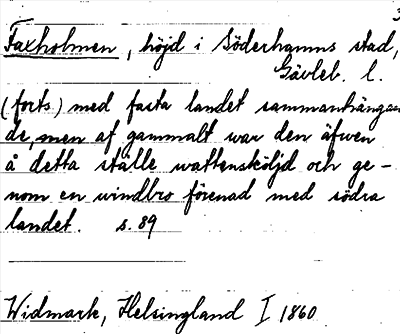 3
Faxholmen, höjd i Söderhamns stad,
Gävleb. l.
(forts.) med fasta landet sammanhängan
de, men af gammalt war den äfwen
å detta ställe wattensköljd och ge-
nom en windbro förenad med södra
landet. s. 89
Widmark, Helsingland I 1860